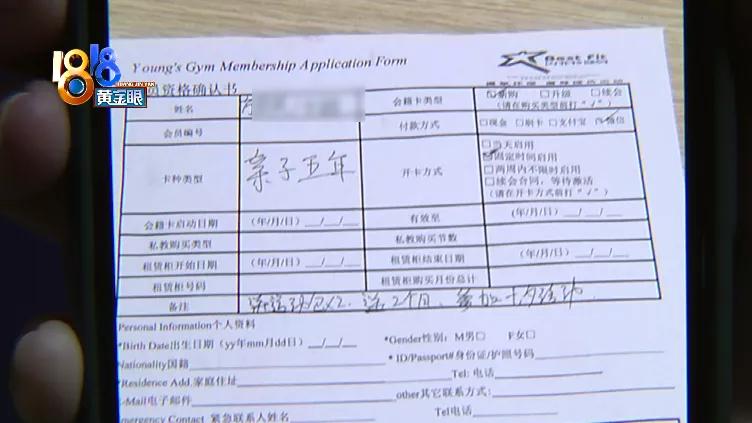 1818
黄金眼
Young's Gym Membership Application Form
Best Fit
资格确认书
姓名
会籍卡类型
☑新购 □升级 □续会
(请在购买类型前打"√")
会员编号
付款方式
□现金 □刷卡 □支付宝 ☑微信
卡种类型
亲子五年
开卡方式
□当天启用
☑固定时间启用
□两周内不限时启用
□续会合同,等待激活
(请在开卡方式前打"√")
会籍卡启动日期
(年/月/日)__/__/__
有效至
(年/月/日)__/__/__
私教购买类型
私教购买节数
租赁柜开始日期
(年/月/日)__/__/__
租赁柜结束日期
(年/月/日)__/__/__
租赁柜号码
租赁柜购买月份总计
备注
送2个月
Personal Information个人资料
*Birth Date出生日期(yy年mm月dd日)__/__/__
*Gender性别: M男□ F女□
Nationality国籍
* ID/Passport#身份证/护照号码
*Residence Add.家庭住址
Tel: 电话
E-Mail电子邮件
other其它联系方式:
Emergency Contact 紧急联系人姓名
Tel电话